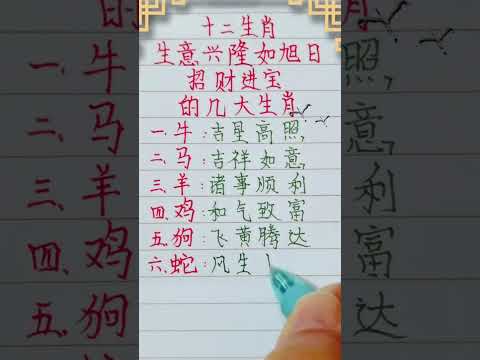 十二生肖
生意兴隆如旭日
招财进宝
的几大生肖
一、牛:吉星高照
二、马:吉祥如意
三、羊:诸事顺利
四、鸡:和气致富
五、狗:飞黄腾达
六、蛇:风生